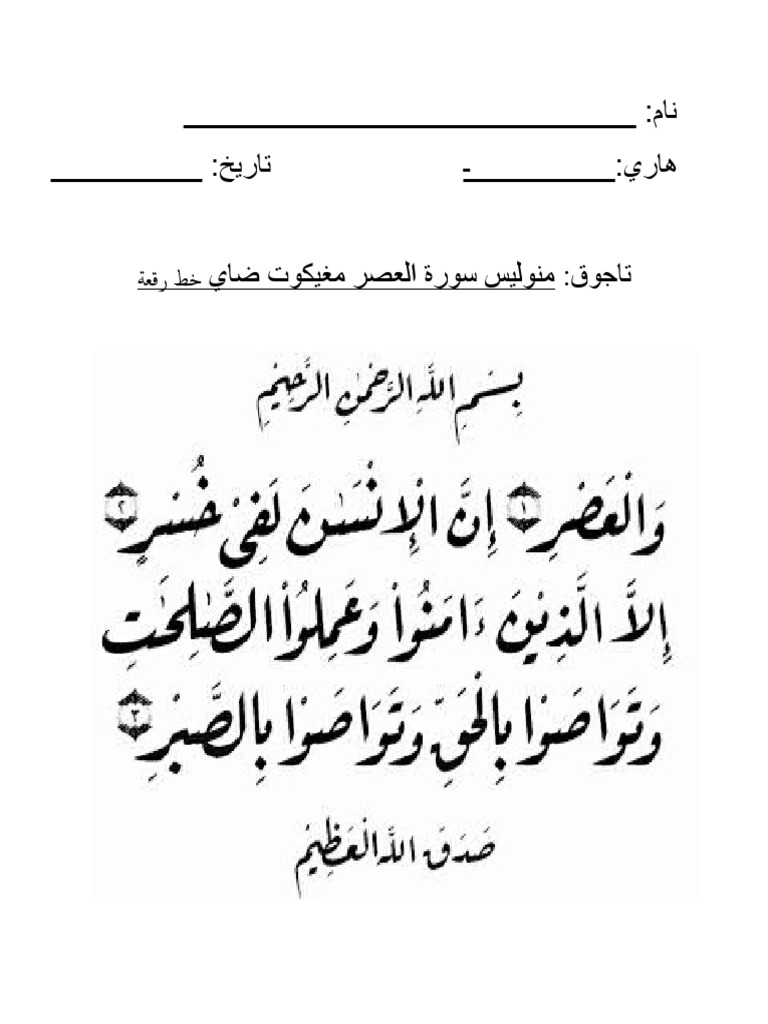 نام: ______________________________
هاري:__________- تاريخ: __________
تاجوق: منوليس سورة العصر مغيكوت ضاي خط رقعة
بِسْمِ اللَّهِ الرَّحْمٰنِ الرَّحِيْمِ
وَالْعَصْرِ ﴿١﴾ إِنَّ الْإِنْسَٰنَ لَفِيْ خُسْرٍ ﴿٢﴾
إِلاَّ الَّذِيْنَ ءَامَنُواْ وَعَمِلُواْ الصَّٰلِحَٰتِ
وَتَوَاصَوْا بِالْحَقِّ وَتَوَاصَوْا بِالصَّبْرِ ﴿٣﴾
صَدَقَ اللَّهُ الْعَظِيْمُ